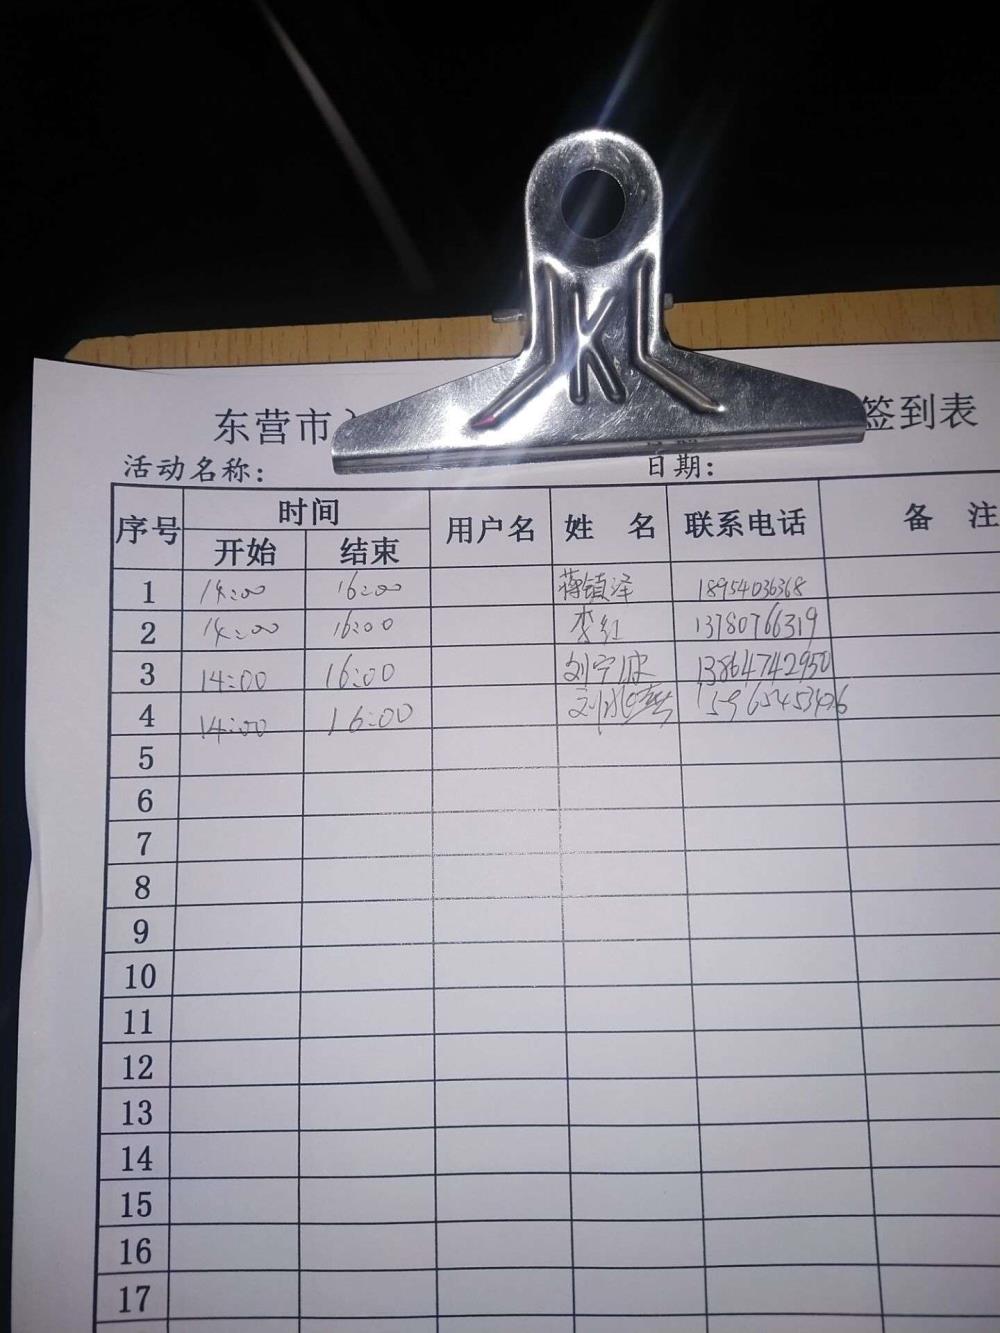 K
东营市 签到表
活动名称： 日期：
序号 时间 用户名 姓名 联系电话 备注
开始 结束
1 14:00 16:00 蒋镇泽 18954036368
2 14:00 16:00 李红 13780766319
3 14:00 16:00 刘宁波 13864742950
4 14:00 16:00
5
6
7
8
9
10
11
12
13
14
15
16
17